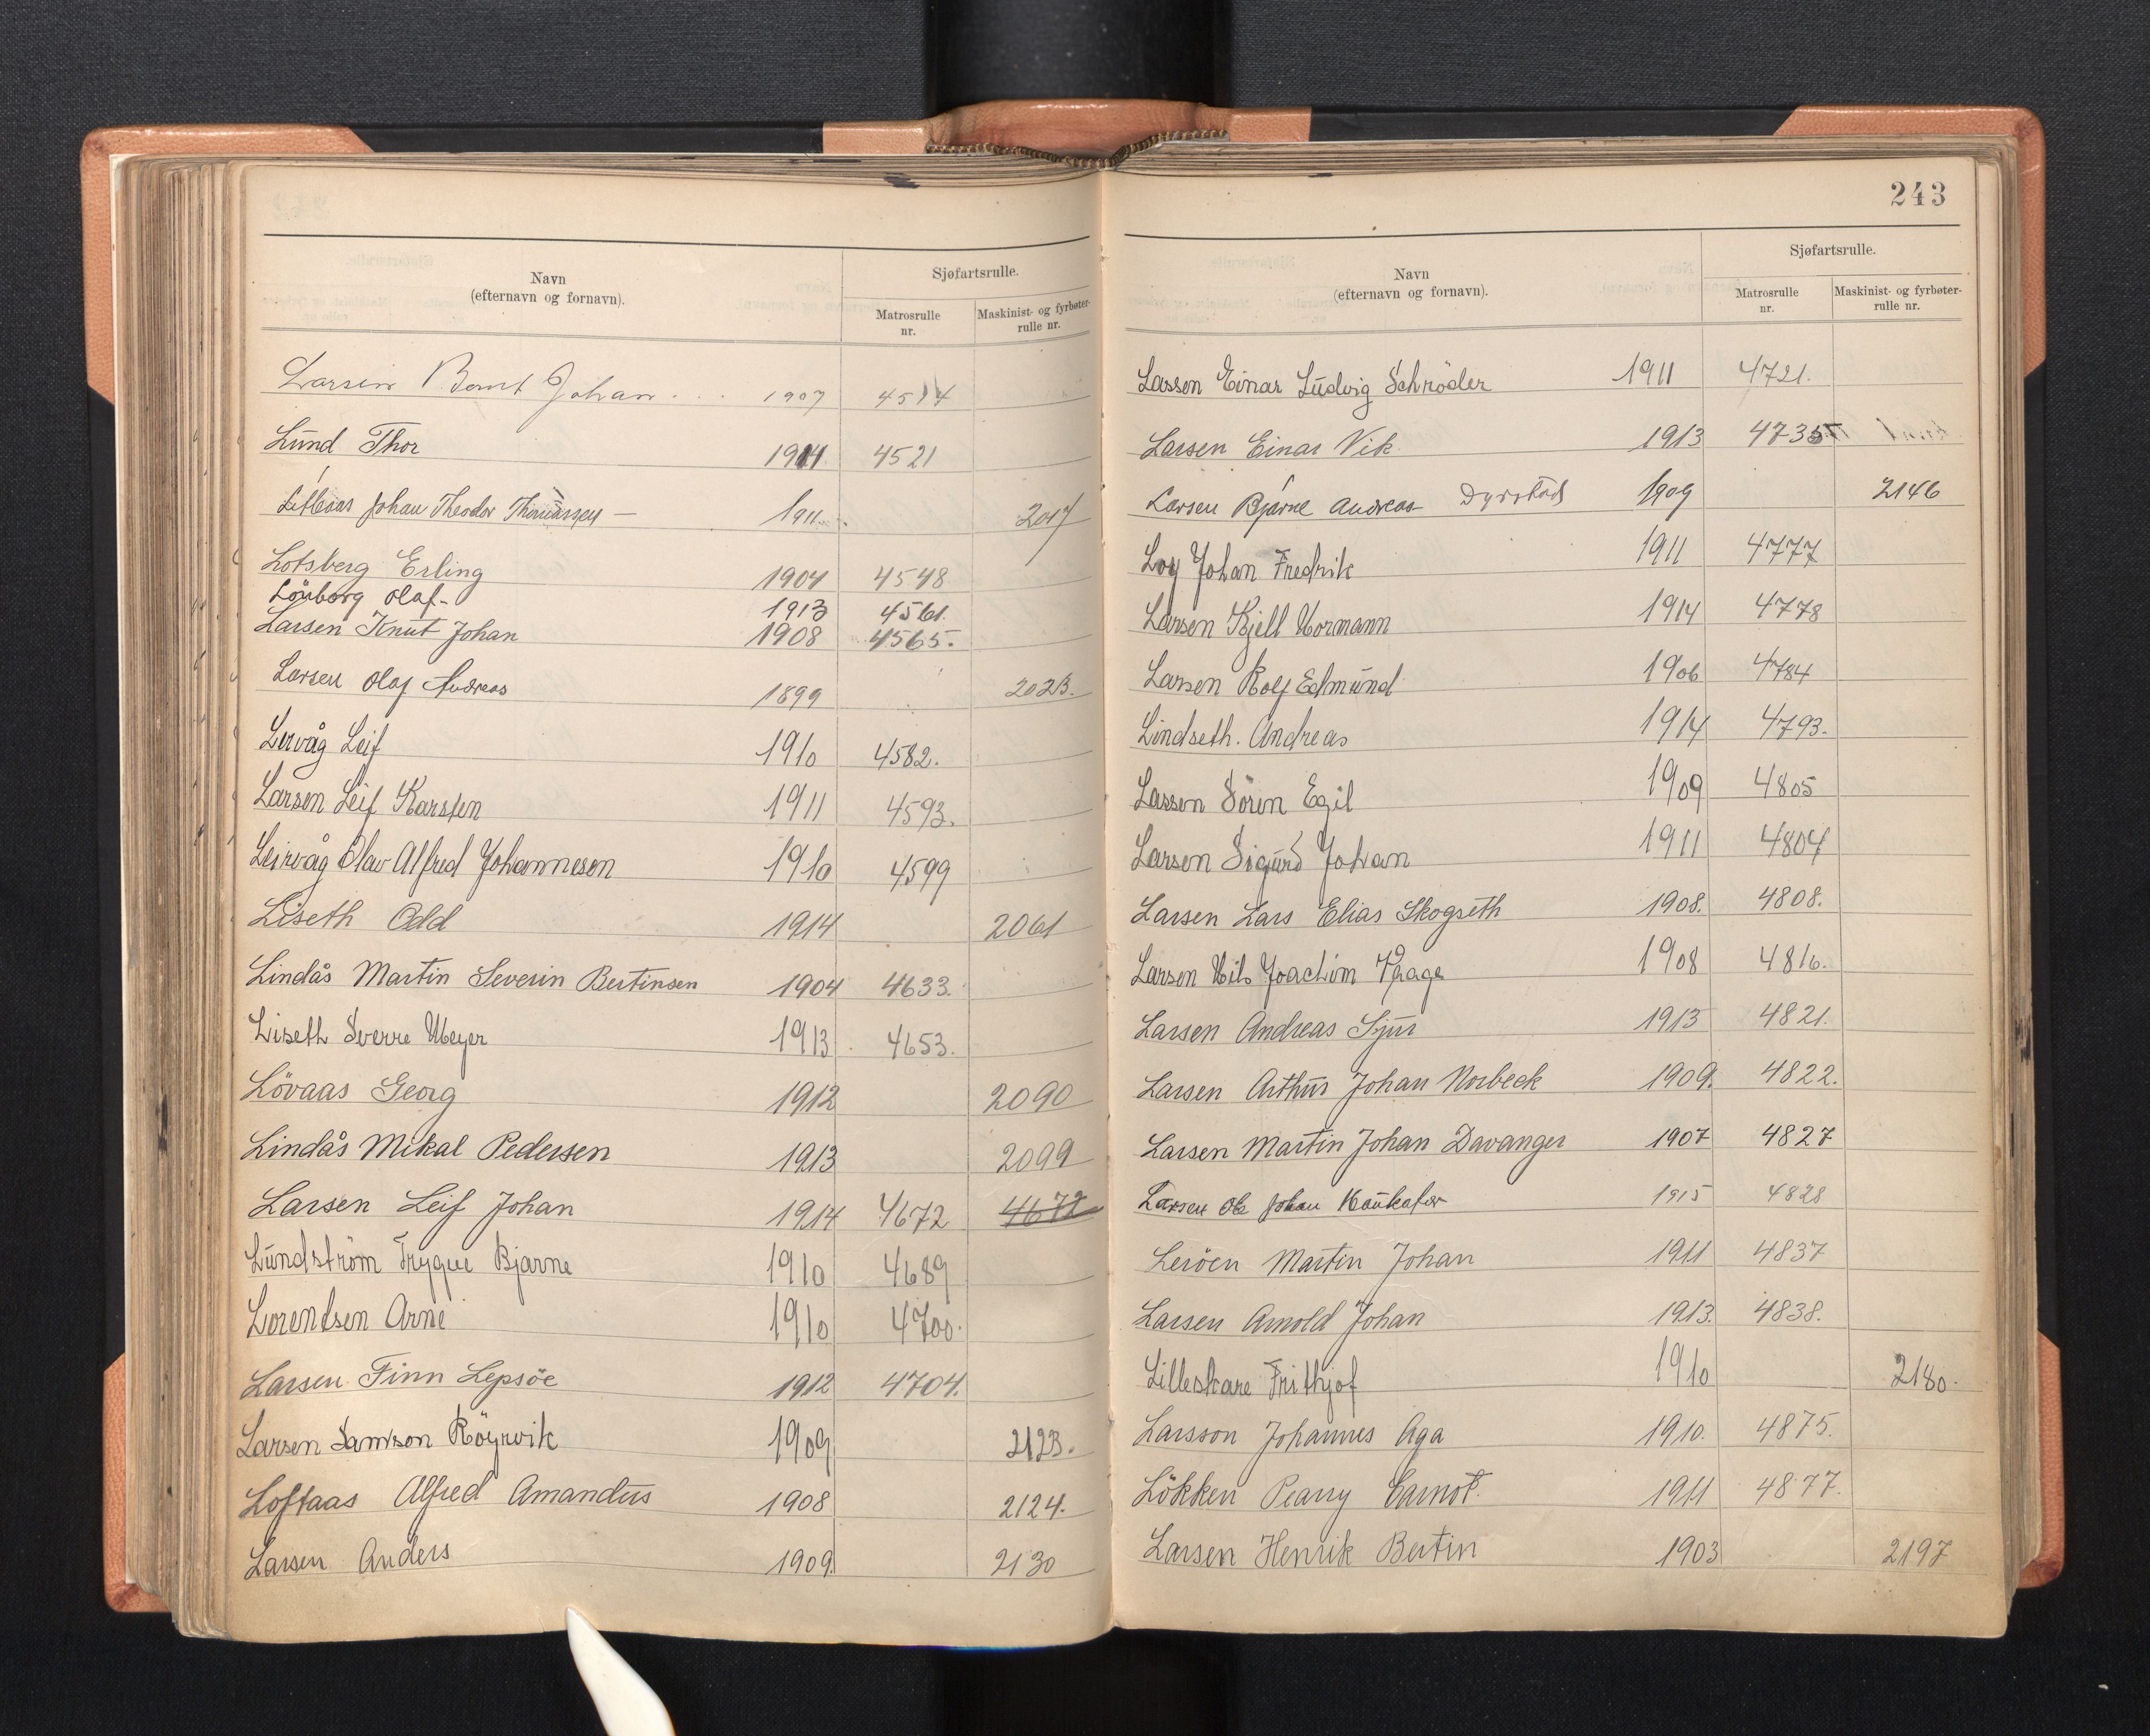 Navn
(efternavn og fornavn).
Sjøfartsrulle.
Matrosrulle
nr.
Maskinist- og fyrbøter-
rulle nr.
Larsen Bernt Johan 1907 4514
Lund Thor 1914 4521
Johan Theodor Thomassen 1911 2017
Lotsberg Erling 1904 4548
Lönborg Olaf 1913 4561
Larsen Knut Johan 1908 4565.
Larsen Olaf Andreas 1899 2023.
Lervåg Leif 1910 4582.
Larsen Leif Karsten 1911 4593.
Leirvåg Olav Alfred Johannesen 1910 4599
Liseth Odd 1914 2061
Lindås Martin Severin Bertinsen 1904 4633.
Liseth Sverre Meyer 1913 4653.
Lövaas Georg 1912 2090
Lindås Mikal Pedersen 1913 2099
Larsen Leif Johan 1914 4672 4672
Lundström Trygve Bjarne 1910 4689
Lorentsen Arne 1910 4700.
Larsen Finn Lepsöe 1912 4704.
Larsen Samson Röyrvik 1909 2123.
Loftaas Alfred Amandus 1908 2124.
Larsen Anders 1909. 2130
243
Navn
(efternavn og fornavn).
Sjøfartsrulle.
Matrosrulle
nr.
Maskinist- og fyrbøter-
rulle nr.
Lassen Einar Ludvig Schröder 1911 4721.
Larsen Einar Vik 1913 4735
Larsen Bjarne Andreas Dyrstad 1909 2146
Loy Johan Fredrik 1911 4777
Larsen Kjell Normann 1914 4778
Larsen Rolf Edmund 1906 4784
Lindseth. Andreas 1914 4793.
Lassen Sören Egil 1909 4805
Larsen Sigurd Johan 1911 4804
Larsen Lars Elias Skogseth 1908. 4808.
Larsen Nils Joachim 1908 4816.
Larsen Andreas Sjur 1913 4821.
Larsen Arthur Johan Norbeck 1909. 4822.
Larsen Martin Johan Davanger 1907 4827
Larsen Ole Johan 1915 4828
Leröen Martin Johan 1911 4837
Larsen Arnold Johan 1913. 4838.
Lilleskare Frithjof 1910 2180.
Larsson Johannes Aga 1910. 4875.
Lökken Peary Carnot. 1911 4877.
Larsen Henrik Bertin 1903 2197